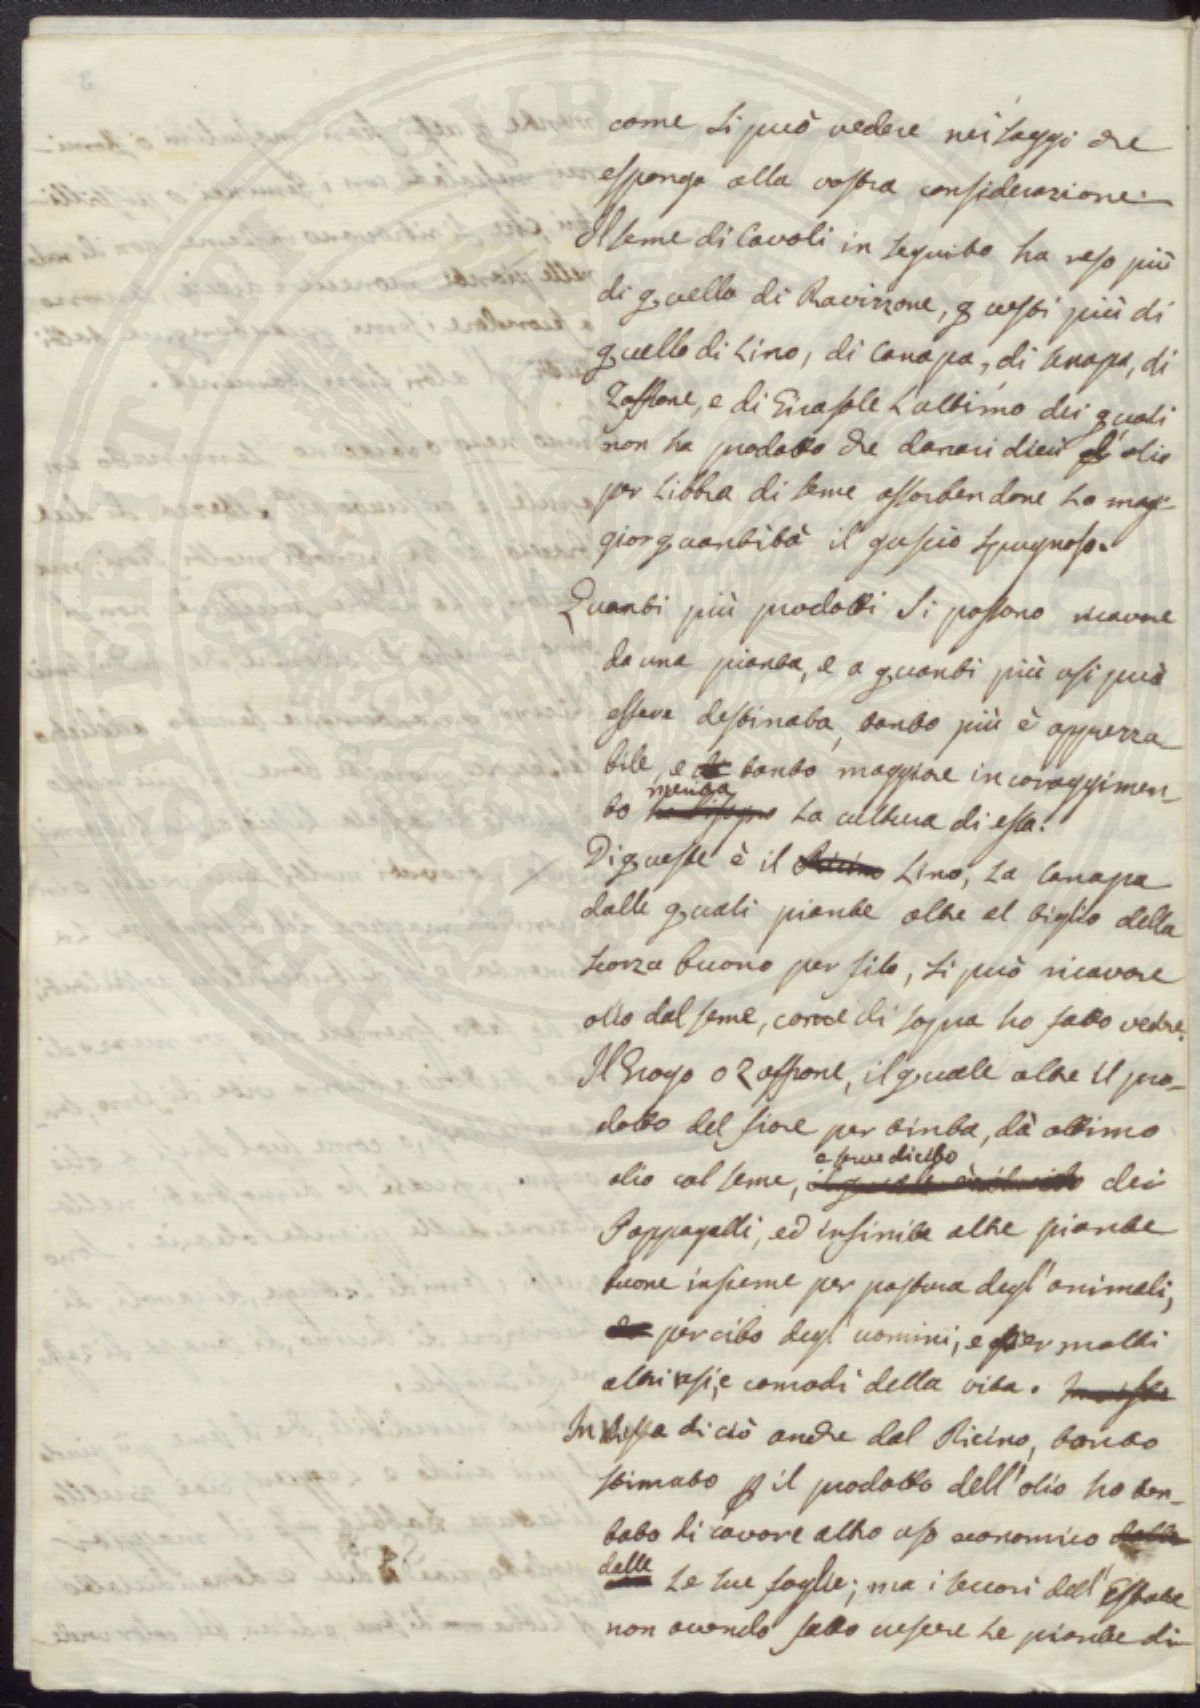 come si può vedere nei saggi che
espongo alla vostra considerazione.
Il seme di Cavoli in seguito ha reso più
di quello di Ravizzone, questi più di
quello di Lino, di Canapa, di Senapa, di
Zaffrone, e di Girasole l'ultimo dei quali
non ha prodotto che danari dieci d'olio
per Libbra di seme assorbendone la mag-
gior quantità il guscio spugnoso.
Quanti più prodotti si possono ricavare
da una pianta, e a quanti più usi può
essere destinata, tanto più è apprezza-
bile, e tanto maggiore incoraggimen-
to merita ha bisogno la cultura di essa.
Di queste è il Ricino Lino, la Canapa
dalle quali piante oltre al tiglio della
scorza buono per filo, si può ricavare
olio dal seme, come di sopra ho fatto vedere.
Il Grogo o Zaffrone, il quale oltre il pro-
dotto del fiore per tinta, dà ottimo
olio col seme, e serve di cibo dei
Pappagalli, ed infinite altre piante
buone insieme per pastura degl'animali,
per cibo degl'uomini, e per molti
altri usi, e comodi della vita.
In vista di ciò anche dal Ricino, tanto
stimato p il prodotto dell'olio ho ten-
tato di cavare altro uso economico dalle
dalle le sue foglie; ma i seccori dell'Estate
non avendo fatto crescere le piante di